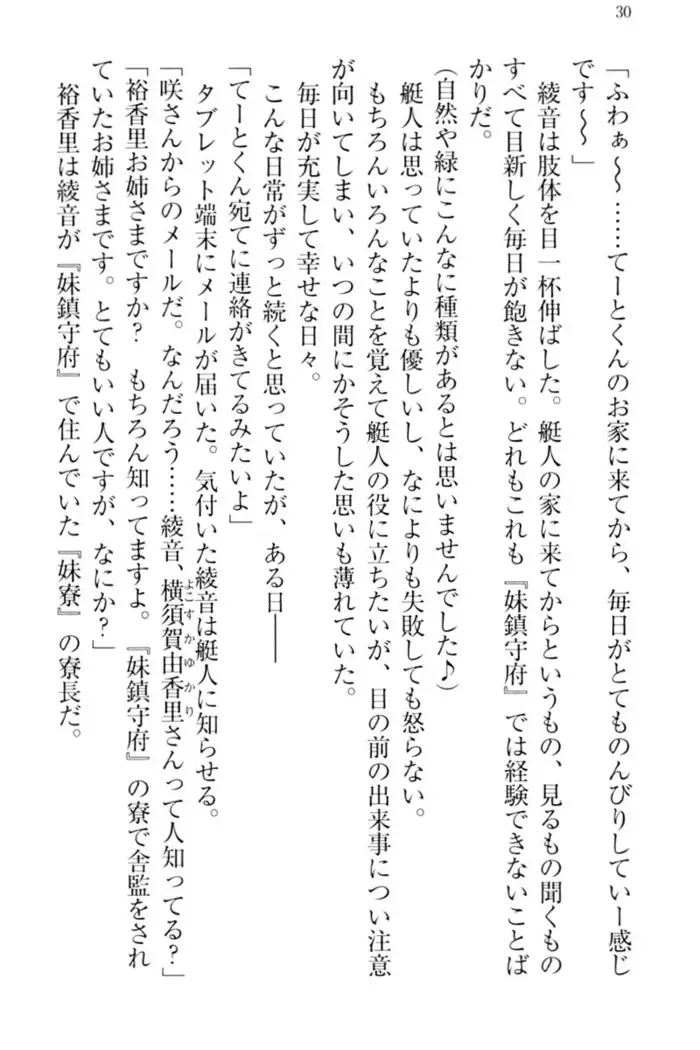 30
「ふわぁ～……てーとくんのお家に来てから、毎日がとてものんびりしていー感じ
です～」
綾音は肢体を目一杯伸ばした。艇人の家に来てからというもの、見るもの聞くもの
すべて目新しく毎日が飽きない。どれもこれも『妹鎮守府』では経験できないことば
かりだ。
(自然や緑にこんなに種類があるとは思いませんでした♪)
艇人は思っていたよりも優しいし、なによりも失敗しても怒らない。
もちろんいろんなことを覚えて艇人の役に立ちたいが、目の前の出来事につい注意
が向いてしまい、いつの間にかそうした思いも薄れていた。
毎日が充実して幸せな日々。
こんな日常がずっと続くと思っていたが、ある日――
「てーとくん宛てに連絡がきてるみたいよ」
タブレット端末にメールが届いた。気付いた綾音は艇人に知らせる。
「咲さんからのメールだ。なんだろう……綾音、横須賀由香里さんって人知ってる？」
よこすかゆかり
「裕香里お姉さまですか？　もちろん知ってますよ。『妹鎮守府』の寮で舎監をされ
ていたお姉さまです。とてもいい人ですが、なにか？」
裕香里は綾音が『妹鎮守府』で住んでいた『妹寮』の寮長だ。